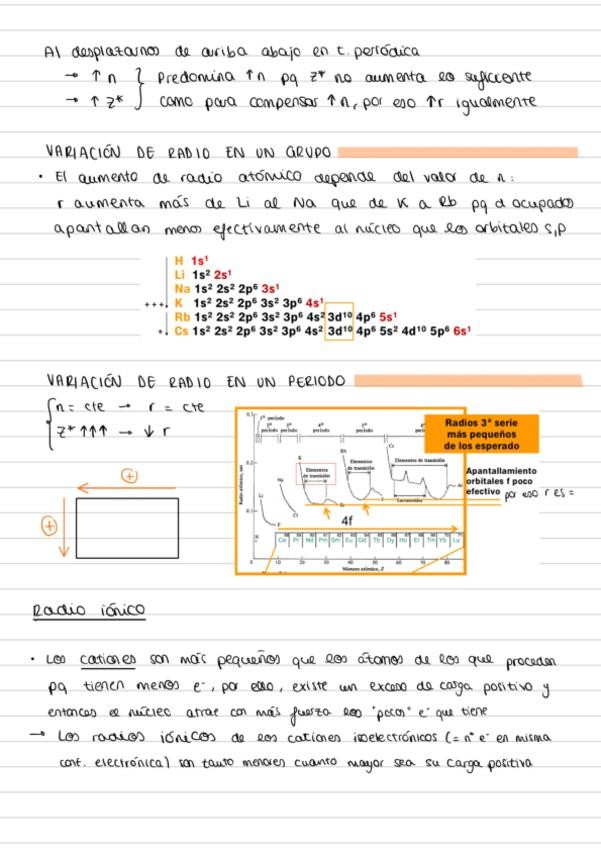 Al desplazarnos de arriba abajo en t. periódica
→ ↑ n } Predomina ↑n pq z* no aumenta lo suficiente
→ ↑ z* } como para compensar ↑n, por eso ↑r igualmente
VARIACIÓN DE RADIO EN UN GRUPO
· El aumento de radio atómico depende del valor de n:
r aumenta más de Li al Na que de K a Rb pq d ocupados
apantallan menos efectivamente al núcleo que los orbitales s,p
H 1s¹
Li 1s² 2s¹
Na 1s² 2s² 2p⁶ 3s¹
+++ K 1s² 2s² 2p⁶ 3s² 3p⁶ 4s¹
Rb 1s² 2s² 2p⁶ 3s² 3p⁶ 4s² 3d¹⁰ 4p⁶ 5s¹
+ Cs 1s² 2s² 2p⁶ 3s² 3p⁶ 4s² 3d¹⁰ 4p⁶ 5s² 4d¹⁰ 5p⁶ 6s¹
VARIACIÓN DE RADIO EN UN PERIODO
{ n = cte → r = cte
{ z* ↑↑↑ → ↓ r
+
+
Radios 3ª serie
más pequeños
de los esperado
Apantallamiento
orbitales f poco
efectivo por eso r es =
1er periodo
periodo periodo periodo periodo
Elementos de transición
Elementos de transición
Elementos de transición
Lantánidos
Radio atómico, nm
0.3
0.2
0.1
Li
Na
K
Rb
Cs
F
H
4f
Ce Pr Nd Pm Sm Eu Gd Tb Dy Ho Er Tm Yb Lu
0 10 20 30 40 50 60 70 80
Número atómico, Z
Radio iónico
· Los cationes son más pequeños que los átomos de los que proceden
pq tienen menos e⁻, por ello, existe un exceso de carga positivo y
entonces el núcleo atrae con más fuerza los "pocos" e⁻ que tiene
→ Los radios iónicos de los cationes isoelectrónicos (= nº e⁻ en misma
conf. electrónica) son tanto menores cuanto mayor sea su carga positiva